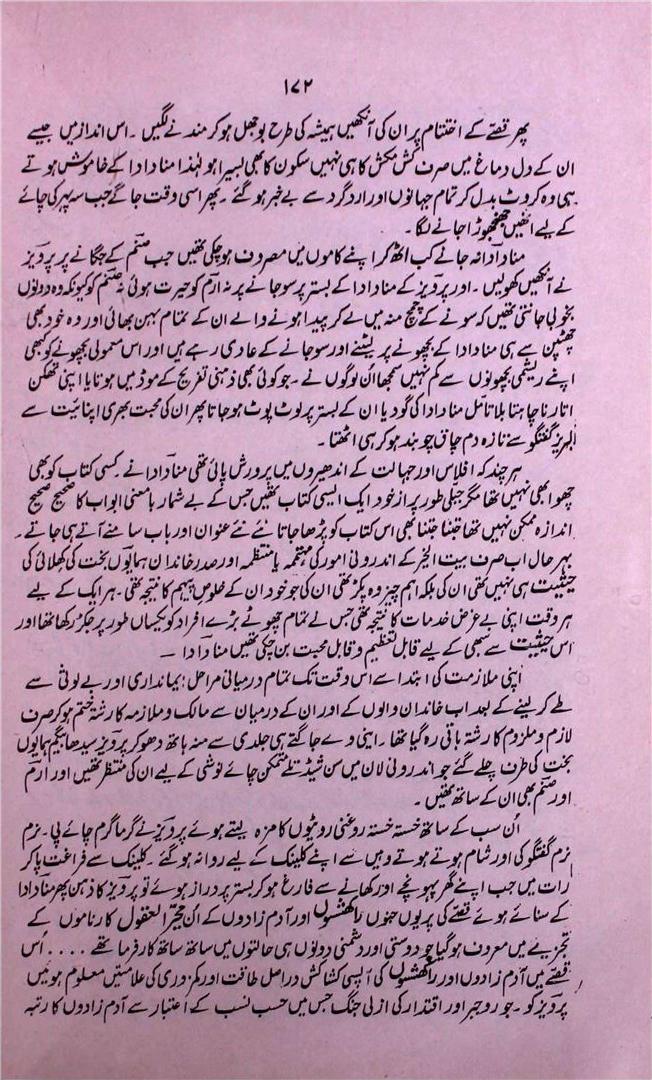 ۱۷۲
پھر قصّے کے اختتام پر ان کی آنکھیں ہمیشہ کی طرح بوجھل ہو کر مندنے لگیں ۔ اس انداز میں جیسے
ان کے دل دماغ میں صرف کش مکش کا ہی نہیں سکون کا بھی بسیرا ہو لہٰذا منّا دادا کے خاموش ہوتے
ہی وہ کروٹ بدل کر تمام جہانوں اور ارد گرد سے بے خبر ہو گئے ۔ پھر اسی وقت جاگے جب سہ پہر کی چائے
کے لیے انھیں جھنجھوڑا جانے لگا ۔
منّا دادا نہ جانے کب اٹھ کر اپنے کاموں میں مصروف ہو چکی تھیں جب صنم کے جگانے پر پرویز
نے آنکھیں کھولیں ۔ اور پرویز کے منّا دادا کے بستر پر سو جانے پر نہ ارم کو حیرت ہوئی نہ صنم کو کیونکہ وہ دونوں
بخوبی جانتی تھیں کہ سونے کے چمچ منہ میں لے کر پیدا ہونے والے ان کے تمام بہن بھائی اور وہ خود بھی
چھٹپن سے ہی منّا دادا کے بچھونے پر لیٹنے اور سو جانے کے عادی رہے ہیں اور اس معمولی بچھونے کو کبھی
اپنے ریشمی بچھونوں سے کم نہیں سمجھا اُن لوگوں نے ۔ جو کوئی بھی ذہنی تفریح کے موڈ میں ہوتا یا اپنی تھکن
اتارنا چاہتا بلا تامل منّا دادا کی گود یا ان کے بستر پر لوٹ پوٹ ہو جاتا پھر ان کی محبت بھری اپنائیت سے
لبریز گفتگو سے تازہ دم چاق چوبند ہو کر ہی اٹھتا ۔
ہر چند کہ افلاس اور جہالت کے اندھیروں میں پرورش پائی تھی منّا دادا نے ۔ کسی کتاب کو بھی
چھوا بھی نہیں تھا مگر جبلی طور پر از خود ایک ایسی کتاب تھیں جس کے بے شمار با معنی ابواب کا صحیح صحیح
اندازہ ممکن نہیں تھا جتنا جتنا بھی اس کتاب کو پڑھا جاتا نئے نئے عنوان اور باب سامنے آتے ہی جاتے ۔
بہر حال اب صرف بیت الخیر کے اندرونی امور کی مہتممہ یا منتظمہ اور صدر خاندان ہمایوں بخت کی کھلائی کی
حیثیت ہی نہیں تھی ان کی بلکہ اہم چیز وہ پکڑ تھی ان کی جو خود ان کے خلوص پیہم کا نتیجہ تھی ۔ ہر ایک کے لیے
ہر وقت اپنی بے غرض خدمات کا نتیجہ تھی جس نے تمام چھوٹے بڑے افراد کو یکساں طور پر جکڑ رکھا تھا اور
اس حیثیت سے سبھی کے لیے قابل تعظیم و قابل محبت بن چکی تھیں منّا دادا ۔
اپنی ملازمت کی ابتدا سے اس وقت تک تمام درمیانی مراحل ایمانداری اور بے لوثی سے
طے کر لینے کے بعد اب خاندان والوں کے اور ان کے درمیان سے مالک و ملازمہ کا رشتہ ختم ہو کر صرف
لازم و ملزوم کا رشتہ باقی رہ گیا تھا ۔ اپنی وے جاگتے ہی جلدی سے منہ ہاتھ دھو کر پرویز سیدھا بیگم ہمایوں
بخت کی طرف چلے گئے جو اندرونی لان میں سن شیڈ تلے متمکن چائے نوشی کے لیے ان کی منتظر تھیں اور ارم
اور صنم بھی ان کے ساتھ تھیں ۔
اُن سب کے ساتھ خستہ خستہ روغنی روٹیوں کا مزہ لیتے ہوئے پرویز نے گرما گرم چائے پی ۔ نرم
نرم گفتگو کی اور شام ہوتے ہوتے وہیں سے اپنے کلینک کے لیے روانہ ہو گئے ۔ کلینک سے فراغت پا کر
رات میں جب اپنے گھر پہونچے اور کھانے سے فارغ ہو کر بستر پر دراز ہوئے تو پرویز کا ذہن پھر منّا دادا
کے سنائے ہوئے قصّے کی پریوں جنوں راکھشسوں اور آدم زادوں کے اُن محیّر العقول کارناموں کے
تجزیے میں مصروف ہو گیا جو دوستی اور دشمنی دونوں ہی حالتوں میں ساتھ ساتھ کارفرما تھے .... اُس
قصّے میں آدم زادوں اور راکھشسوں کی آپسی کشاکش دراصل طاقت اور کمزوری کی علامتیں معلوم ہوئیں
پرویز کو ۔ جو رو جبر اور اقتدار کی ازلی جنگ جس میں حسب نسب کے اعتبار سے آدم زادوں کا رتبہ